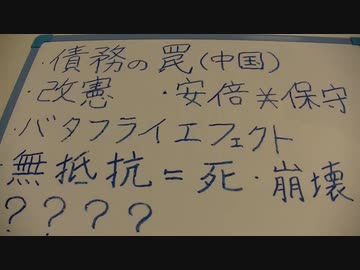 ・債務の罠(中国)
・改憲 ・安倍≠保守
・バタフライエフェクト
・無抵抗=死・崩壊
????